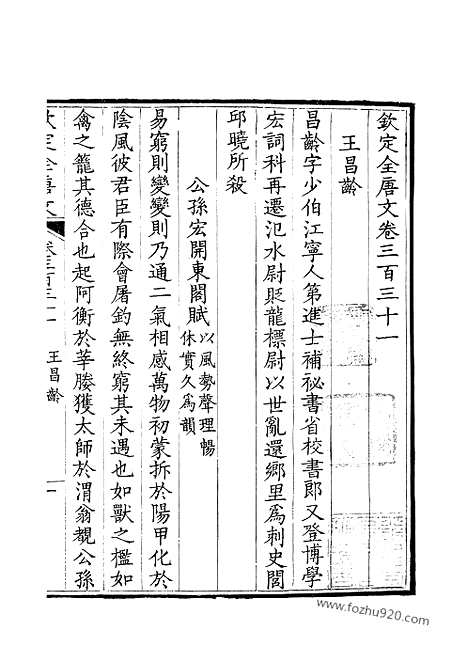 欽定全唐文卷三百三十一
王昌齡
昌齡字少伯江寧人第進士補祕書省校書郎又登博學
宏詞科再遷汜水尉貶龍標尉以世亂還鄉里爲刺史閭
邱曉所殺
公孫宏開東閣賦以風勢聲理暢
休實久爲韻
易窮則變變則乃通二氣相感萬物初蒙拆於陽甲化於
陰風彼君臣有際會屠釣無終窮其未遇也如獸之檻如
禽之籠其德合也起阿衡於莘媵獲太師於渭翁覩公孫
欽定全唐文
卷三百三十一
王昌齡
一
www.fozhu920.com